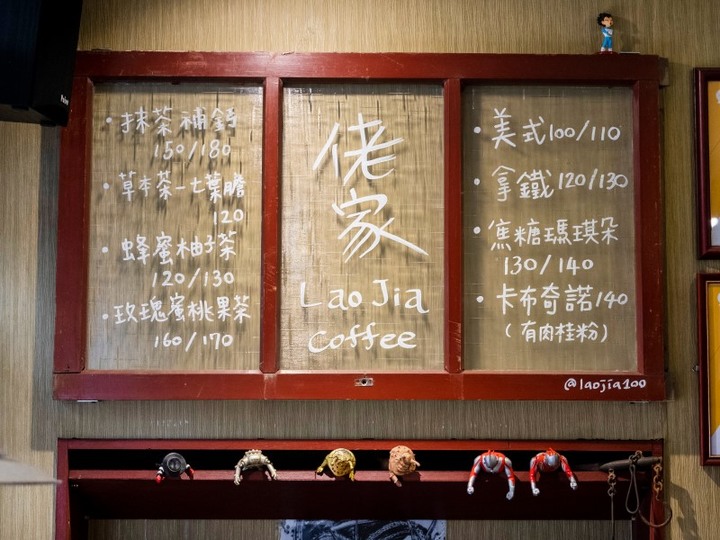 • 抹茶補鈣
150/180
• 草本茶-七葉膽
120
• 蜂蜜柚子茶
120/130
• 玫瑰蜜桃果茶
160/170
佬
家
Lao Jia
Coffee
• 美式100/110
• 拿鐵120/130
• 焦糖瑪琪朵
130/140
• 卡布奇諾140
(有肉桂粉)
@laojia100